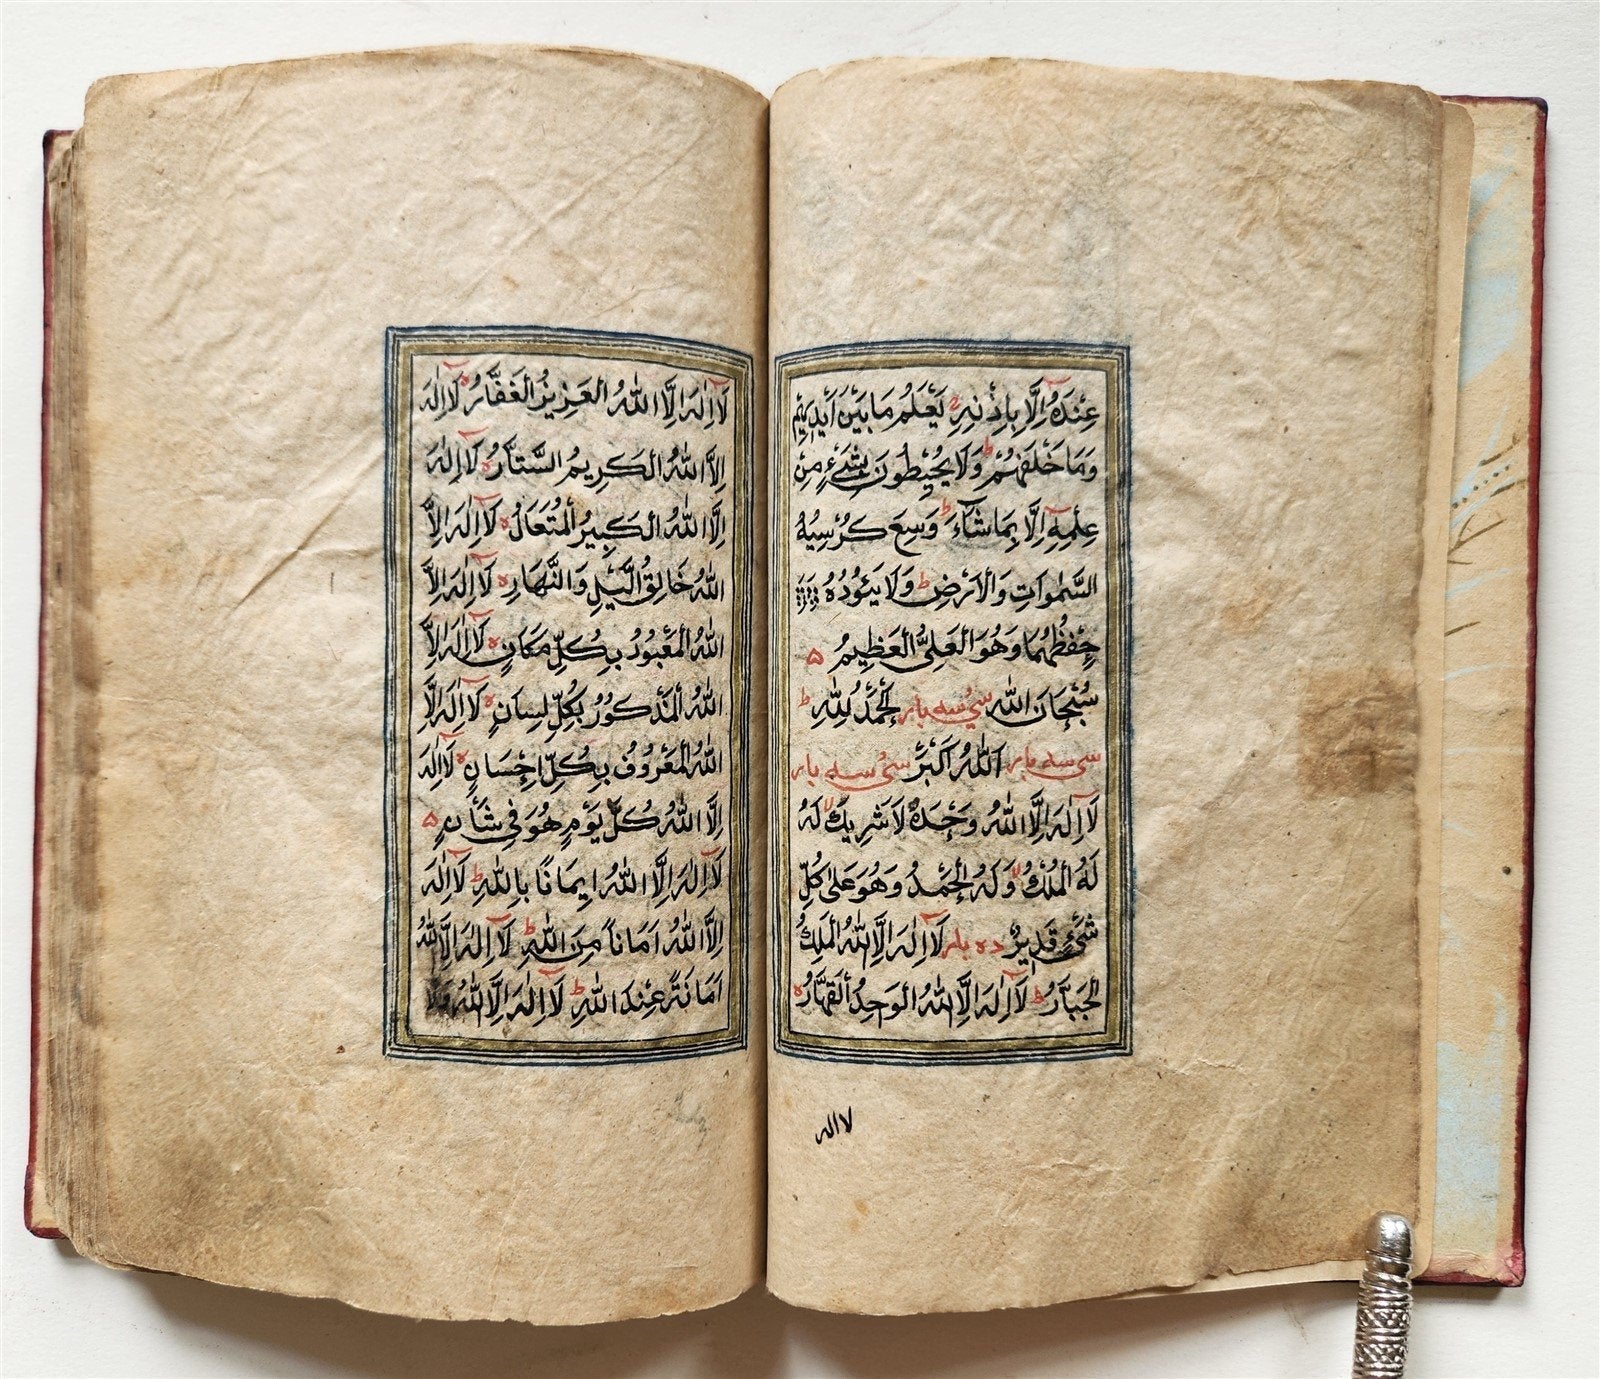 عِنْدَهُ اِلَّا بِاِذْنِهِ يَعْلَمُ مَا بَيْنَ اَيْدِيهِمْ
وَمَا خَلْفَهُمْ ط وَلَا يُحِيْطُونَ بِشَىْءٍ مِنْ
عِلْمِهٖ اِلَّا بِمَا شَآءَ ط وَسِعَ كُرْسِيُّهُ
السَّمٰوَاتِ وَالْاَرْضَ ط وَلَا يَئُوْدُهُ
حِفْظُهُمَا وَهُوَ الْعَلِىُّ الْعَظِيْمُ ۵
سُبْحَانَ اللّٰه سى سه بار اَلْحَمْدُ لِلّٰهِ ط
سى سه بار اَللّٰهُ اَكْبَرُ سى سه بار
لَآ اِلٰهَ اِلَّا اللّٰهُ وَحْدَهُ لَا شَرِيْكَ لَهُ
لَهُ الْمُلْكُ وَلَهُ الْحَمْدُ وَهُوَ عَلٰى كُلِّ
شَىْءٍ قَدِيْرٌ ده بار لَآ اِلٰهَ اِلَّا اللّٰهُ الْمَلِكُ
الْجَبَّارُ ط لَآ اِلٰهَ اِلَّا اللّٰهُ الْوَحِدُ الْقَهَّارُ ه
لااله
لَآ اِلٰهَ اِلَّا اللّٰهُ الْعَزِيْزُ الْغَفَّارُ ه لَآ اِلٰهَ
اِلَّا اللّٰهُ الْكَرِيْمُ السَّتَّارُ ه لَآ اِلٰهَ
اِلَّا اللّٰهُ الْكَبِيْرُ الْمُتَعَالُ ه لَآ اِلٰهَ اِلَّا
اللّٰهُ خَالِقُ الَّيْلِ وَالنَّهَارِ ه لَآ اِلٰهَ اِلَّا
اللّٰهُ الْمَعْبُوْدُ بِكُلِّ مَكَانٍ ه لَآ اِلٰهَ اِلَّا
اللّٰهُ الْمَذْكُوْرُ بِكُلِّ لِسَانٍ ه لَآ اِلٰهَ اِلَّا
اللّٰهُ الْمَعْرُوْفُ بِكُلِّ اِحْسَانٍ ه لَآ اِلٰهَ
اِلَّا اللّٰهُ كُلَّ يَوْمٍ هُوَ فِى شَأْنٍ ۵
لَآ اِلٰهَ اِلَّا اللّٰهُ اِيْمَانًا بِاللّٰهِ ط لَآ اِلٰهَ
اِلَّا اللّٰهُ اَمَانًا مِنَ اللّٰهِ ط لَآ اِلٰهَ اِلَّا اللّٰهُ
اَمَانَةً عِنْدَ اللّٰهِ ط لَآ اِلٰهَ اِلَّا اللّٰهُ